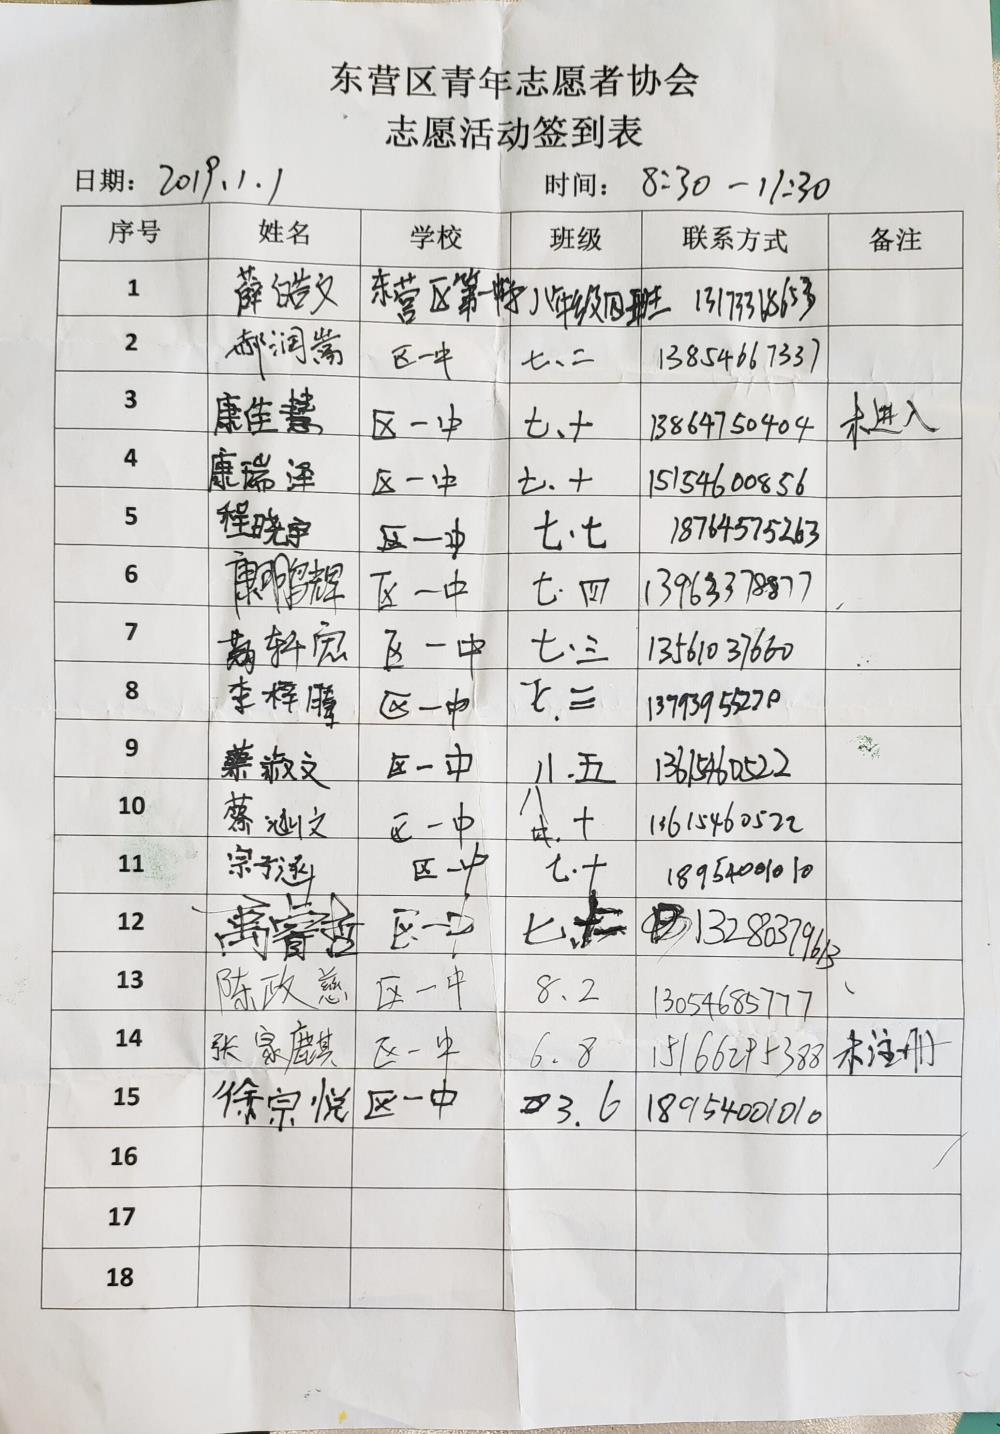 东营区青年志愿者协会
志愿活动签到表
日期：2019.1.1 时间：8:30-11:30
序号 姓名 学校 班级 联系方式 备注
1 薛皓文 东营区第一中学 八年级四班 13173318653
2 郝润嵩 区一中 七、二 13854667337
3 康佳慧 区一中 七、十 13864750404 未进入
4 康瑞泽 区一中 七、十 15154600856
5 程晓宇 区一中 七.七 18764575263
6 康鹏辉 区一中 七.四 13963378877
7 轩宏 区一中 七.三 13561037660
8 李梓腾 区一中 七.三 1379395527
9 蔡淑文 区一中 八.五 13615460522
10 蔡涵文 区一中 八.十 13615460522
11 宗于涵 区一中 七.十 18954001010
12 禹睿哲 区一中 七. 13280379613
13 陈政慈 区一中 8.2 13054685777
14 张家麒 区一中 6.8 15166295388 未注册
15 徐宗悦 区一中 3.6 18954001010
16
17
18